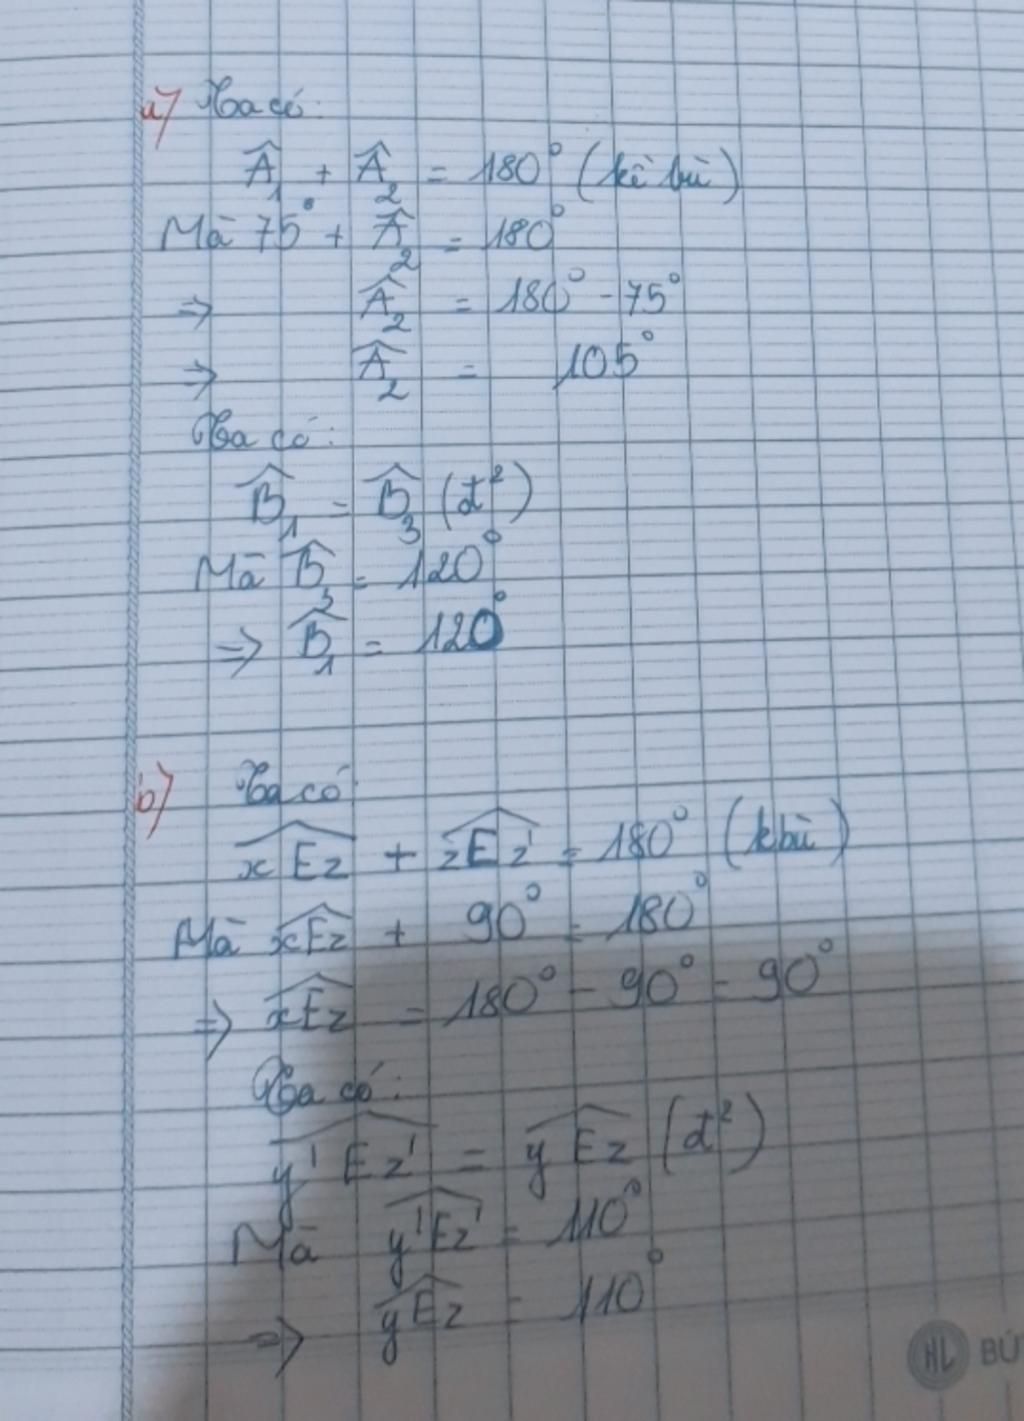 a) Ta có:
Â₁ + Â₂ = 180° (kề bù)
Mà 75° + Â₂ = 180°
=> Â₂ = 180° - 75°
=> Â₂ = 105°
Ta có:
B̂₁ = B̂₃ (đ²)
Mà B̂₃ = 120°
=> B̂₁ = 120°
b) Ta có
xEz + zEz' = 180° (kbù)
Mà xEz + 90° = 180°
=> xEz = 180° - 90° = 90°
Ta có:
y'Ez' = yEz (đ²)
Mà y'Ez' = 110°
=> yEz = 110°
HL BÚ